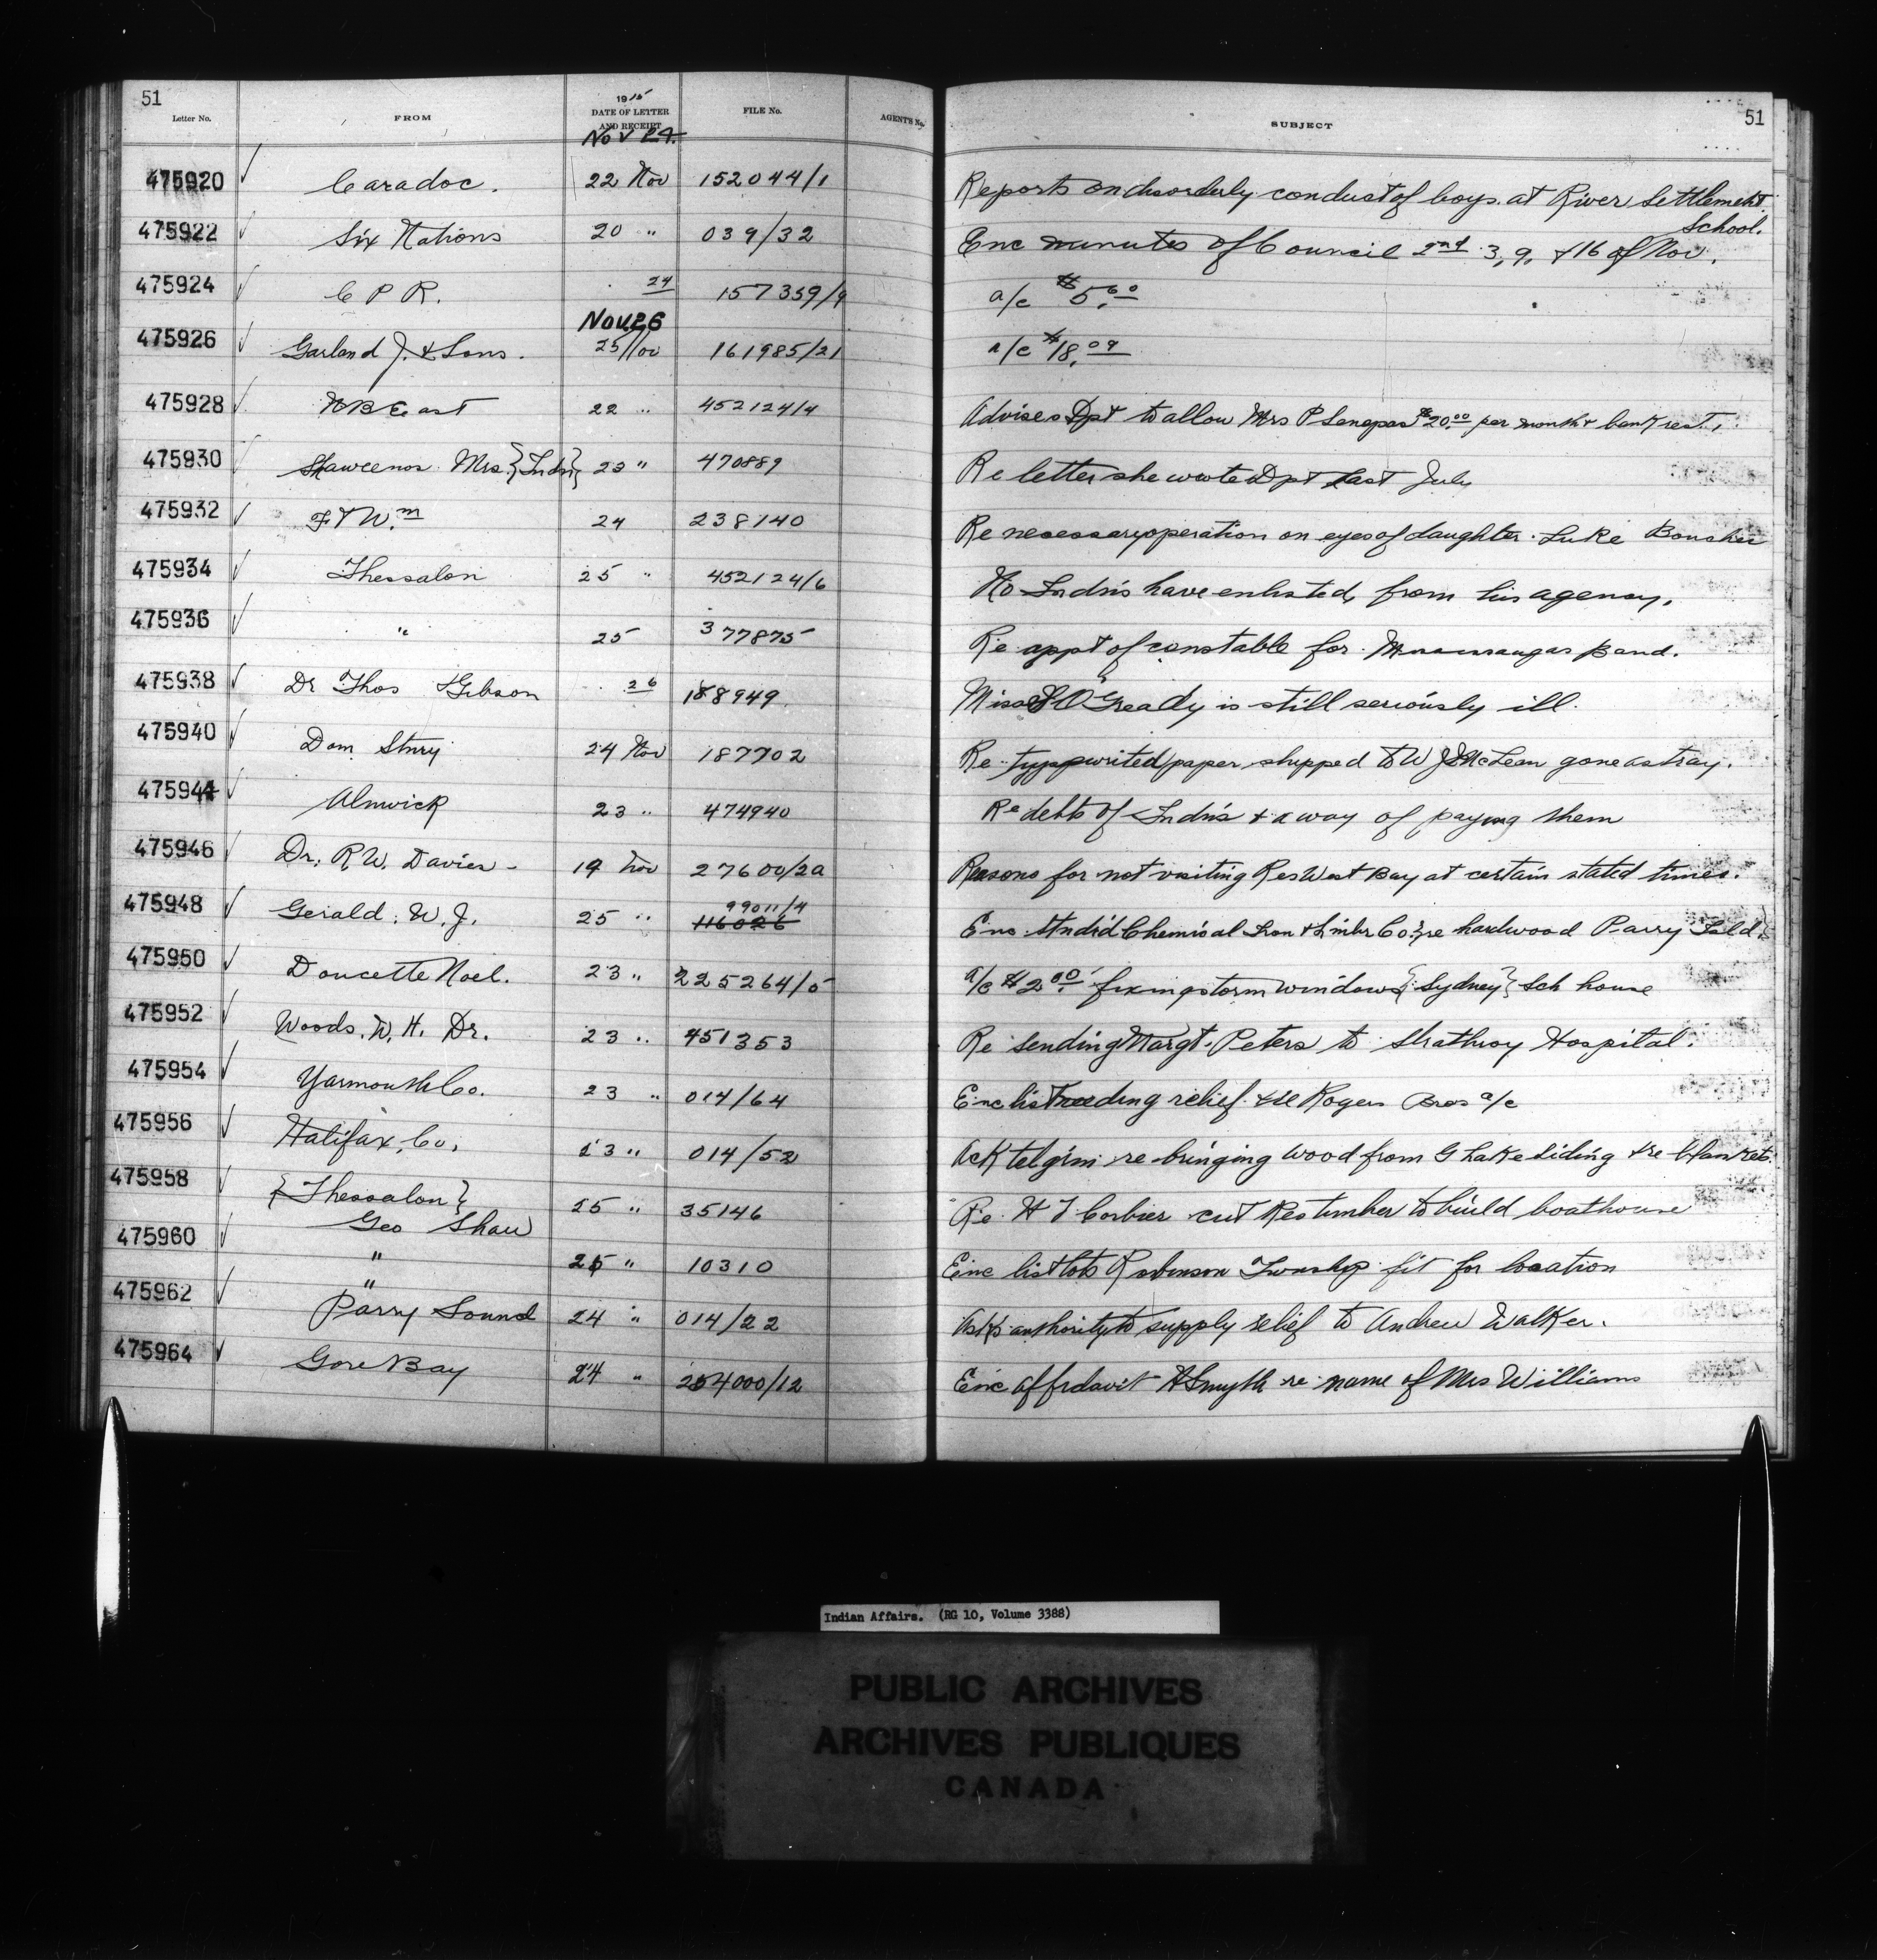 51
51
Letter No. FROM 1915 DATE OF LETTER AND RECEIPT FILE No. AGENT'S No. SUBJECT
Nov 24.
475920 Caradoc. 22 Nov 152044/1 Reports on disorderly conduct of boys at River Settlement
School.
475922 Six Nations 20 " 039/32 Enc minutes of Council 2nd 3, 9, & 16 of Nov.
475924 C P R. 24 157359/9 a/c $5.60
Nov 26
475926 Garland J. & Sons. 25 Nov 161985/21 a/c $18.09
475928 N B East 22 " 452124/4 Advises Dpt to allow Mrs P $20.00 per month & bank rest.
475930 Mrs. {Indn} 23 " 470889 Re letter she wrote Dpt last July
475932 Ft Wm 24 238140 Re necessary operation on eyes of daughter Luke
475934 Thessalon 25 " 452124/6 No Indns have enlisted from his agency.
475936 " 25 377875 Re appt of constable for Band.
475938 Dr Thos Gibson 26 188949 Miss O'Gready is still seriously ill.
475940 Dom Stnry 24 Nov 187702 Re typewrited paper shipped to W J McLean gone astray.
475944 Alnwick 23 " 474940 Re debts of Indns & a way of paying them
475946 Dr. R. W. Davies - 19 Nov 27600/2a Reasons for not visiting Res West Bay at certain stated times.
99011/4
475948 Gerald. W. J. 25 " 116026 Enc Stndrd Chemical Iron & Lmbr Co. re hardwood Parry Isld}
475950 Doucette Noel. 23 " 225264/5 a/c $2.00 fixing storm windows {Sydney} Sch house
475952 Woods. W. H. Dr. 23 " 451353 Re sending Margt. Peters to Strathroy Hospital.
475954 Yarmouth Co. 23 " 014/64 Enc list needing relief & re Rogers Bros a/c
475956 Halifax, Co. 23 " 014/52 Ack telgrm re bringing wood from G Lake siding & re blankets.
475958 {Thessalon} 25 " 35146 Re H J Corbier cut Res timber to build boathouse
Geo Shaw
475960 " 25 " 10310 Enc list lots Robinson Twnship fit for location
"
475962 Parry Sound 24 " 014/22 Asks authority to supply relief to Andrew Walker.
475964 Gore Bay 24 " 254000/12 Enc affidavit H Smyth re name of Mrs Williams
Indian Affairs. (RG 10, Volume 3388)
PUBLIC ARCHIVES
ARCHIVES PUBLIQUES
CANADA